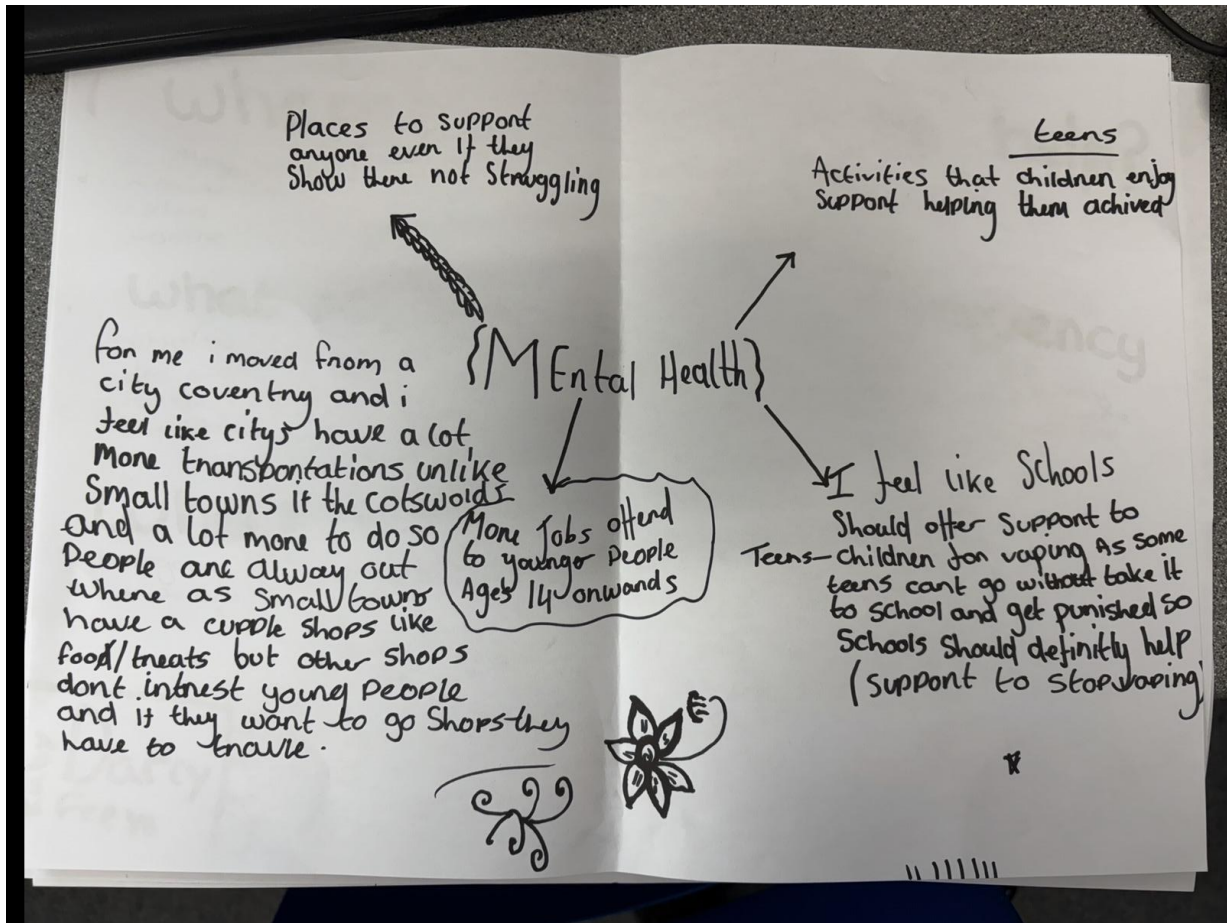 Places to support
anyone even if they
Show there not Struggling
teens
Activities that children enjoy
Support helping them achived
{MEntal Health}
for me i moved from a
city coventry and i
feel like citys have a lot
More transportations unlike
Small towns if the cotswolds
and a lot more to do so
People are alway out
where as Small towns
have a cupple shops like
food/treats but other shops
dont intrest young People
and if they want to go Shops they
have to travle.
More Jobs offerd
to younger People
Ages 14 onwards
I feel like Schools
Should offer Support to
Teens - children for vaping As some
teens cant go without take it
to school and get punished so
Schools Should definitly help
(support to stop vaping)